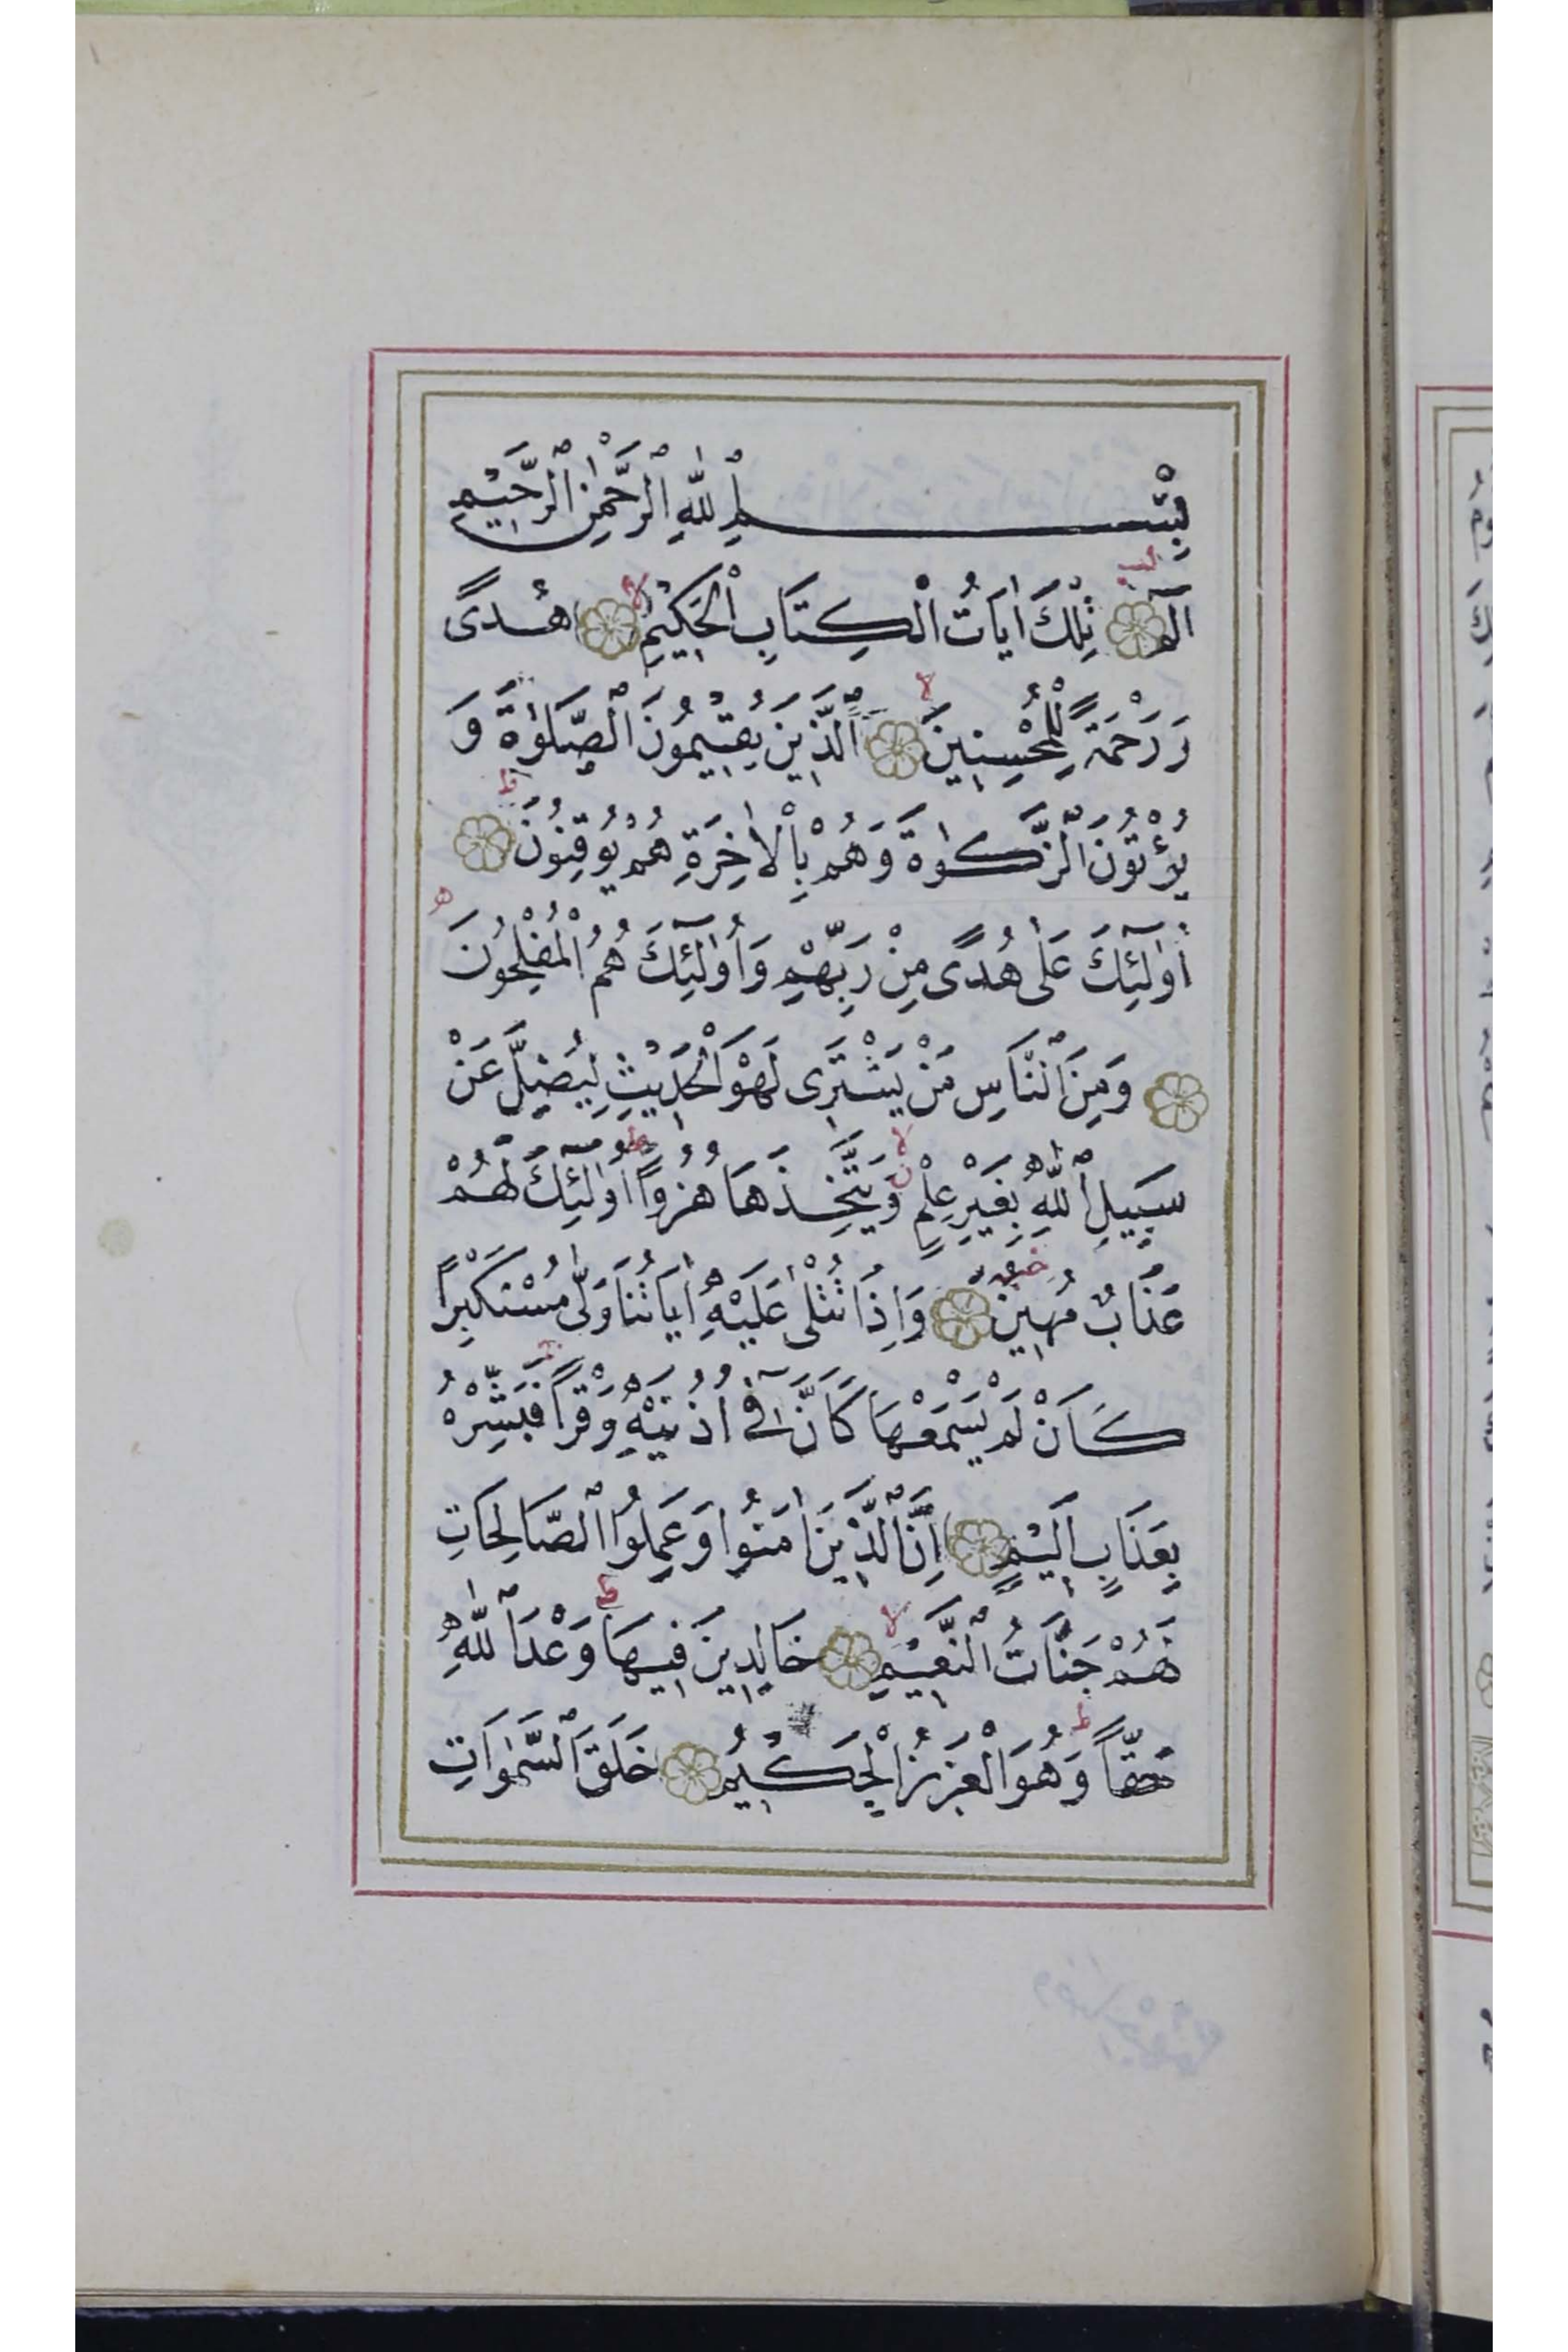 بِسْمِ ٱللّٰهِ ٱلرَّحْمٰنِ ٱلرَّحِيْمِ
الٓمٓ تِلْكَ اٰيَاتُ الْكِتَابِ الْحَكِيْمِ هُدًى
وَرَحْمَةً لِلْمُحْسِنِينَ اَلَّذِينَ يُقِيْمُونَ الصَّلٰوةَ وَ
يُؤْتُونَ الزَّكٰوةَ وَهُمْ بِالْاٰخِرَةِ هُمْ يُوقِنُونَ
اُولٰٓئِكَ عَلٰى هُدًى مِنْ رَبِّهِمْ وَاُولٰٓئِكَ هُمُ الْمُفْلِحُونَ
وَمِنَ النَّاسِ مَنْ يَشْتَرِى لَهْوَ الْحَدِيْثِ لِيُضِلَّ عَنْ
سَبِيلِ اللّٰهِ بِغَيْرِ عِلْمٍ وَيَتَّخِذَهَا هُزُوًا اُولٰٓئِكَ لَهُمْ
عَذَابٌ مُهِينٌ وَاِذَا تُتْلٰى عَلَيْهِ اٰيَاتُنَا وَلّٰى مُسْتَكْبِرًا
كَاَنْ لَمْ يَسْمَعْهَا كَاَنَّ فٓى اُذُنَيْهِ وَقْرًا فَبَشِّرْهُ
بِعَذَابٍ اَلِيْمٍ اِنَّ الَّذِينَ اٰمَنُوا وَعَمِلُوا الصَّالِحَاتِ
لَهُمْ جَنَّاتُ النَّعِيْمِ خَالِدِينَ فِيهَا وَعْدَ اللّٰهِ
حَقًّا وَهُوَ الْعَزِيزُ الْحَكِيْمُ خَلَقَ السَّمٰوَاتِ